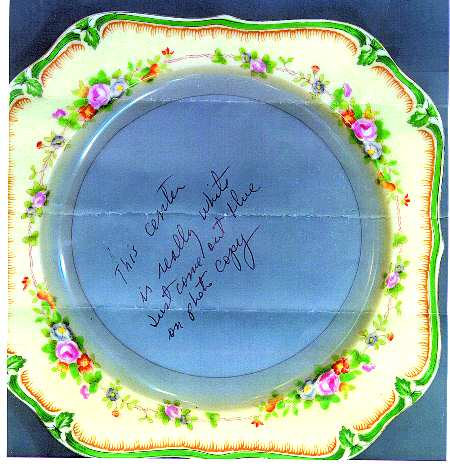 This center
is really white
Just come out blue
on photo copy